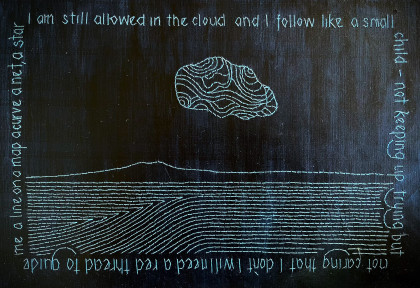 I am still allowed in the cloud and I follow like a small
child – not keeping up trying but
not caring that I don't I will need a red thread to guide
me a line on a map a curve a net, a star